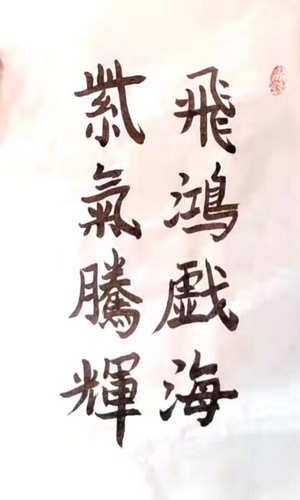 飛鴻戯海
紫氣騰輝